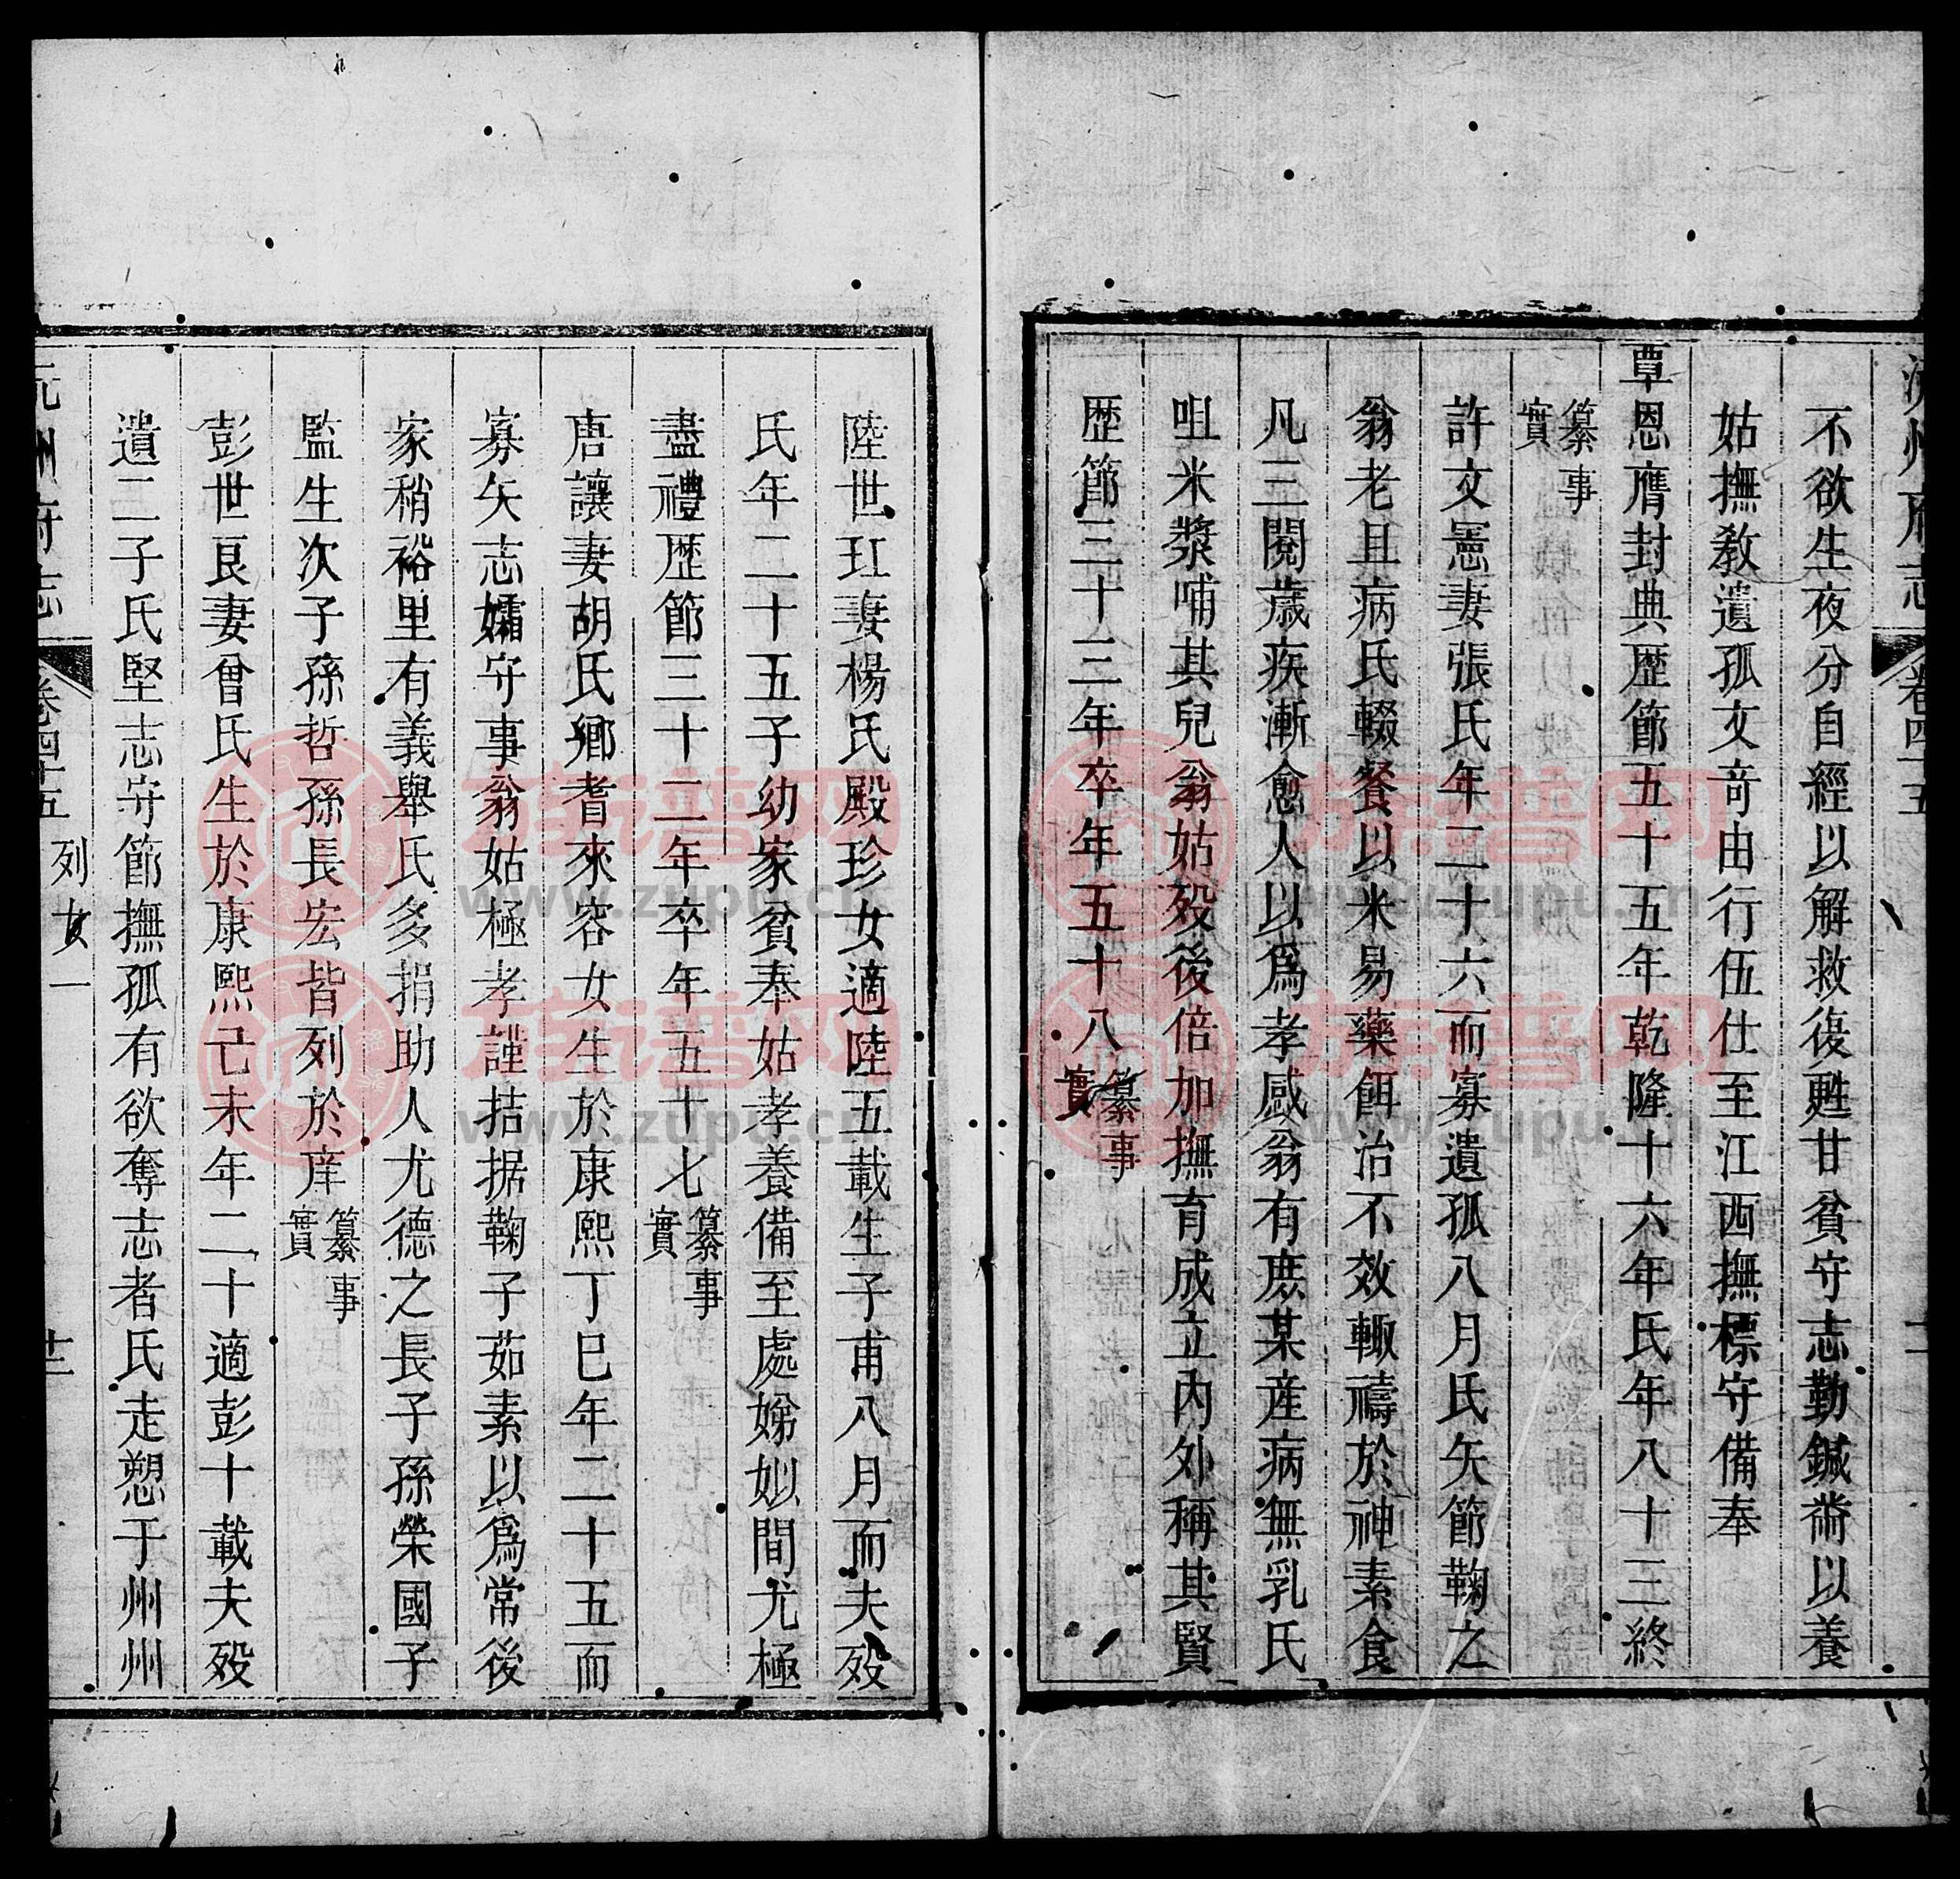 沅州府志 卷四十五
不欲生夜分自經以解救復甦甘貧守志勤鍼黹以養
姑撫敎遺孤文竒由行伍仕至江西撫標守備奉
覃恩膺封典歴節五十五年乾隆十六年氏年八十三終
纂事實
許文憲妻張氏年二十六而寡遺孤八月氏矢節鞠之
翁老且病氏輟餐以米易藥餌治不效輙禱於神素食
凡三閱歲疾漸愈人以爲孝感翁有庶某産病無乳氏
咀米漿哺其兒翁姑歿後倍加撫育成立內外稱其賢
歴節三十三年卒年五十八 纂事實
陸世玒妻楊氏殿珍女適陸五載生子甫八月而夫歿
氏年二十五子幼家貧奉姑孝養備至處娣姒間尤極
盡禮歴節三十二年卒年五十七 纂事實
唐讓妻胡氏鄉耆來容女生於康熙丁巳年二十五而
寡矢志孀守事翁姑極孝謹拮据鞠子茹素以爲常後
家稍裕里有義舉氏多捐助人尤德之長子孫榮國子
監生次子孫哲孫長宏皆列於庠 纂事實
彭世良妻曾氏生於康熙己未年二十適彭十載夫歿
遺二子氏堅志守節撫孤有欲奪志者氏走愬于州州
沅州府志 卷四十五 列女一 十二
族谱网
www.zupu.cn
族谱网
www.zupu.cn
族谱网
www.zupu.cn
族谱网
www.zupu.cn